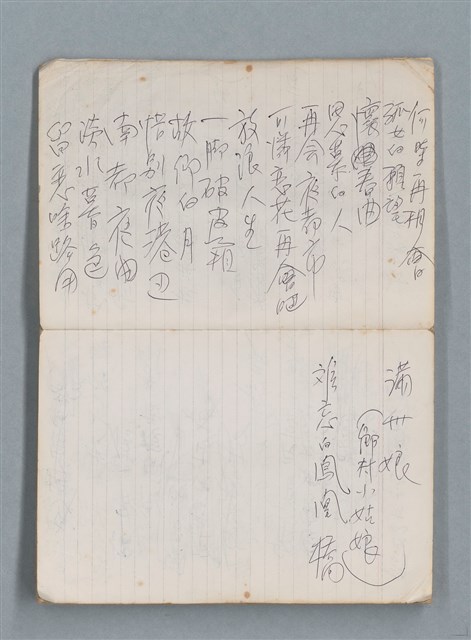 何時再相會
孤女的願望
懷念春曲
思慕的人
再会夜都市
可憐恋花再會吧
放浪人生
一脚破皮箱
故鄉的月
惜别夜港辺
南都夜曲
淡水暮色
留恋啥路用
滿州娘
(鄉村小姑娘)
难忘的鳳凰橋